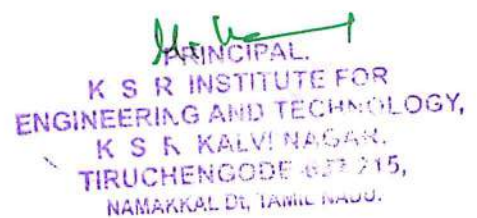 PRINCIPAL.
K S R INSTITUTE FOR
ENGINEERING AND TECHNOLOGY,
K S R KALVI NAGAR.
TIRUCHENGODE 637 215,
NAMAKKAL Dt, TAMIL NADU.